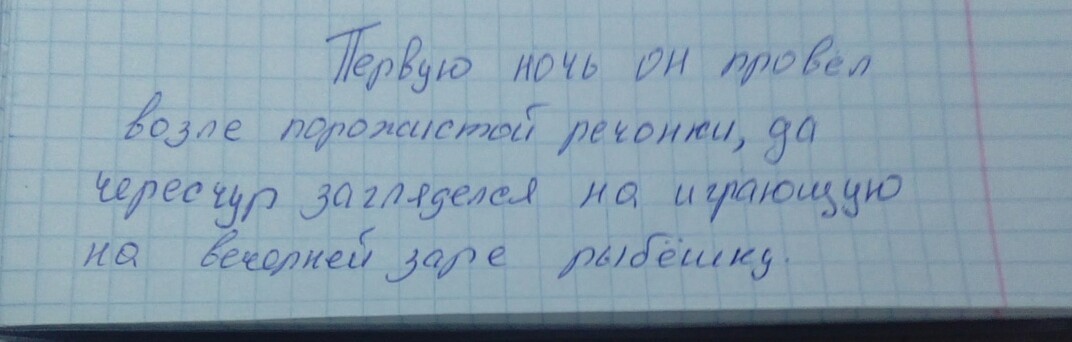 Первую ночь он провёл
возле порожистой речонки, да
чересчур загляделся на играющую
на вечерней заре рыбёшку.